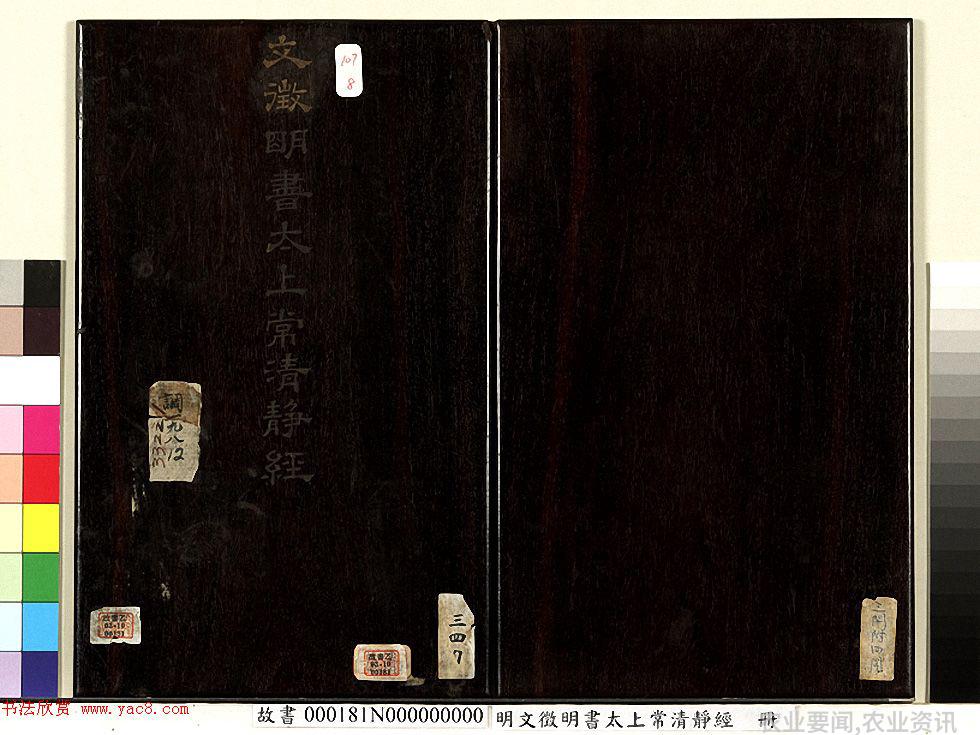 文徵明書太上常清静經
107
8
調
九八
12
332
三四7
故書乙
02-10
00181
故書乙
02-10
00181
书法欣赏 www.yac8.com
故書 000181N000000000
明文徵明書太上常清靜經 冊
农业要闻,农业资讯